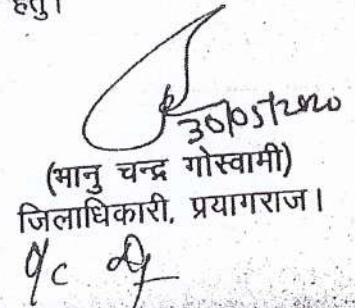 हेतु।
30/05/2020
(भानु चन्द्र गोस्वामी)
जिलाधिकारी, प्रयागराज।